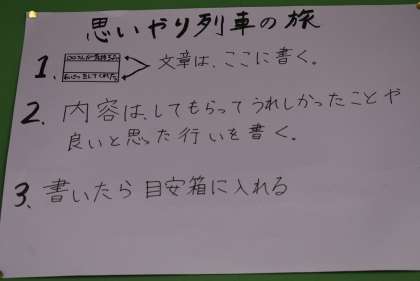 思いやり列車の旅
1. 文章は、ここに書く。
2. 内容は、してもらってうれしかったことや
良いと思った行いを書く。
3. 書いたら目安箱に入れる